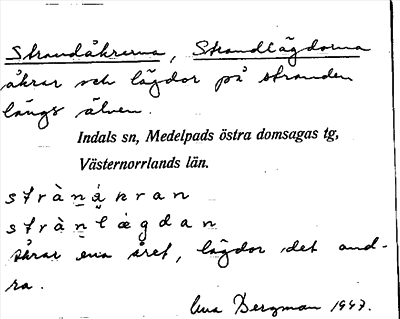 Strandåkrarna, Strandlägdorna
åkrar och lägdor på stranden
längs älven.
Indals sn, Medelpads östra domsagas tg,
Västernorrlands län.
stràṇákran
stràṇlægdan
åkrar ena året, lägdor det and-
ra.
Bergman 1947.